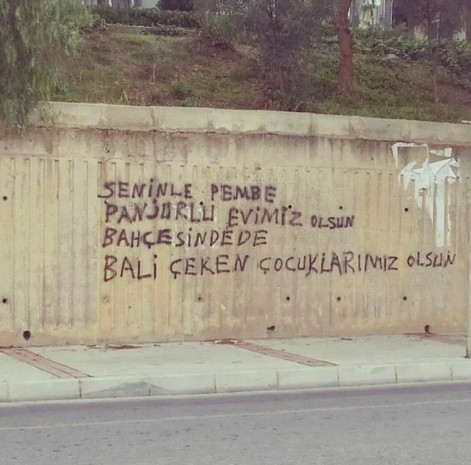 SENİNLE PEMBE
PANJURLU EVİMİZ OLSUN
BAHÇESİNDEDE
BALİ ÇEKEN ÇOCUKLARIMIZ OLSUN